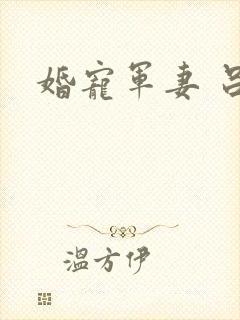 婚寵軍妻
溫方伊